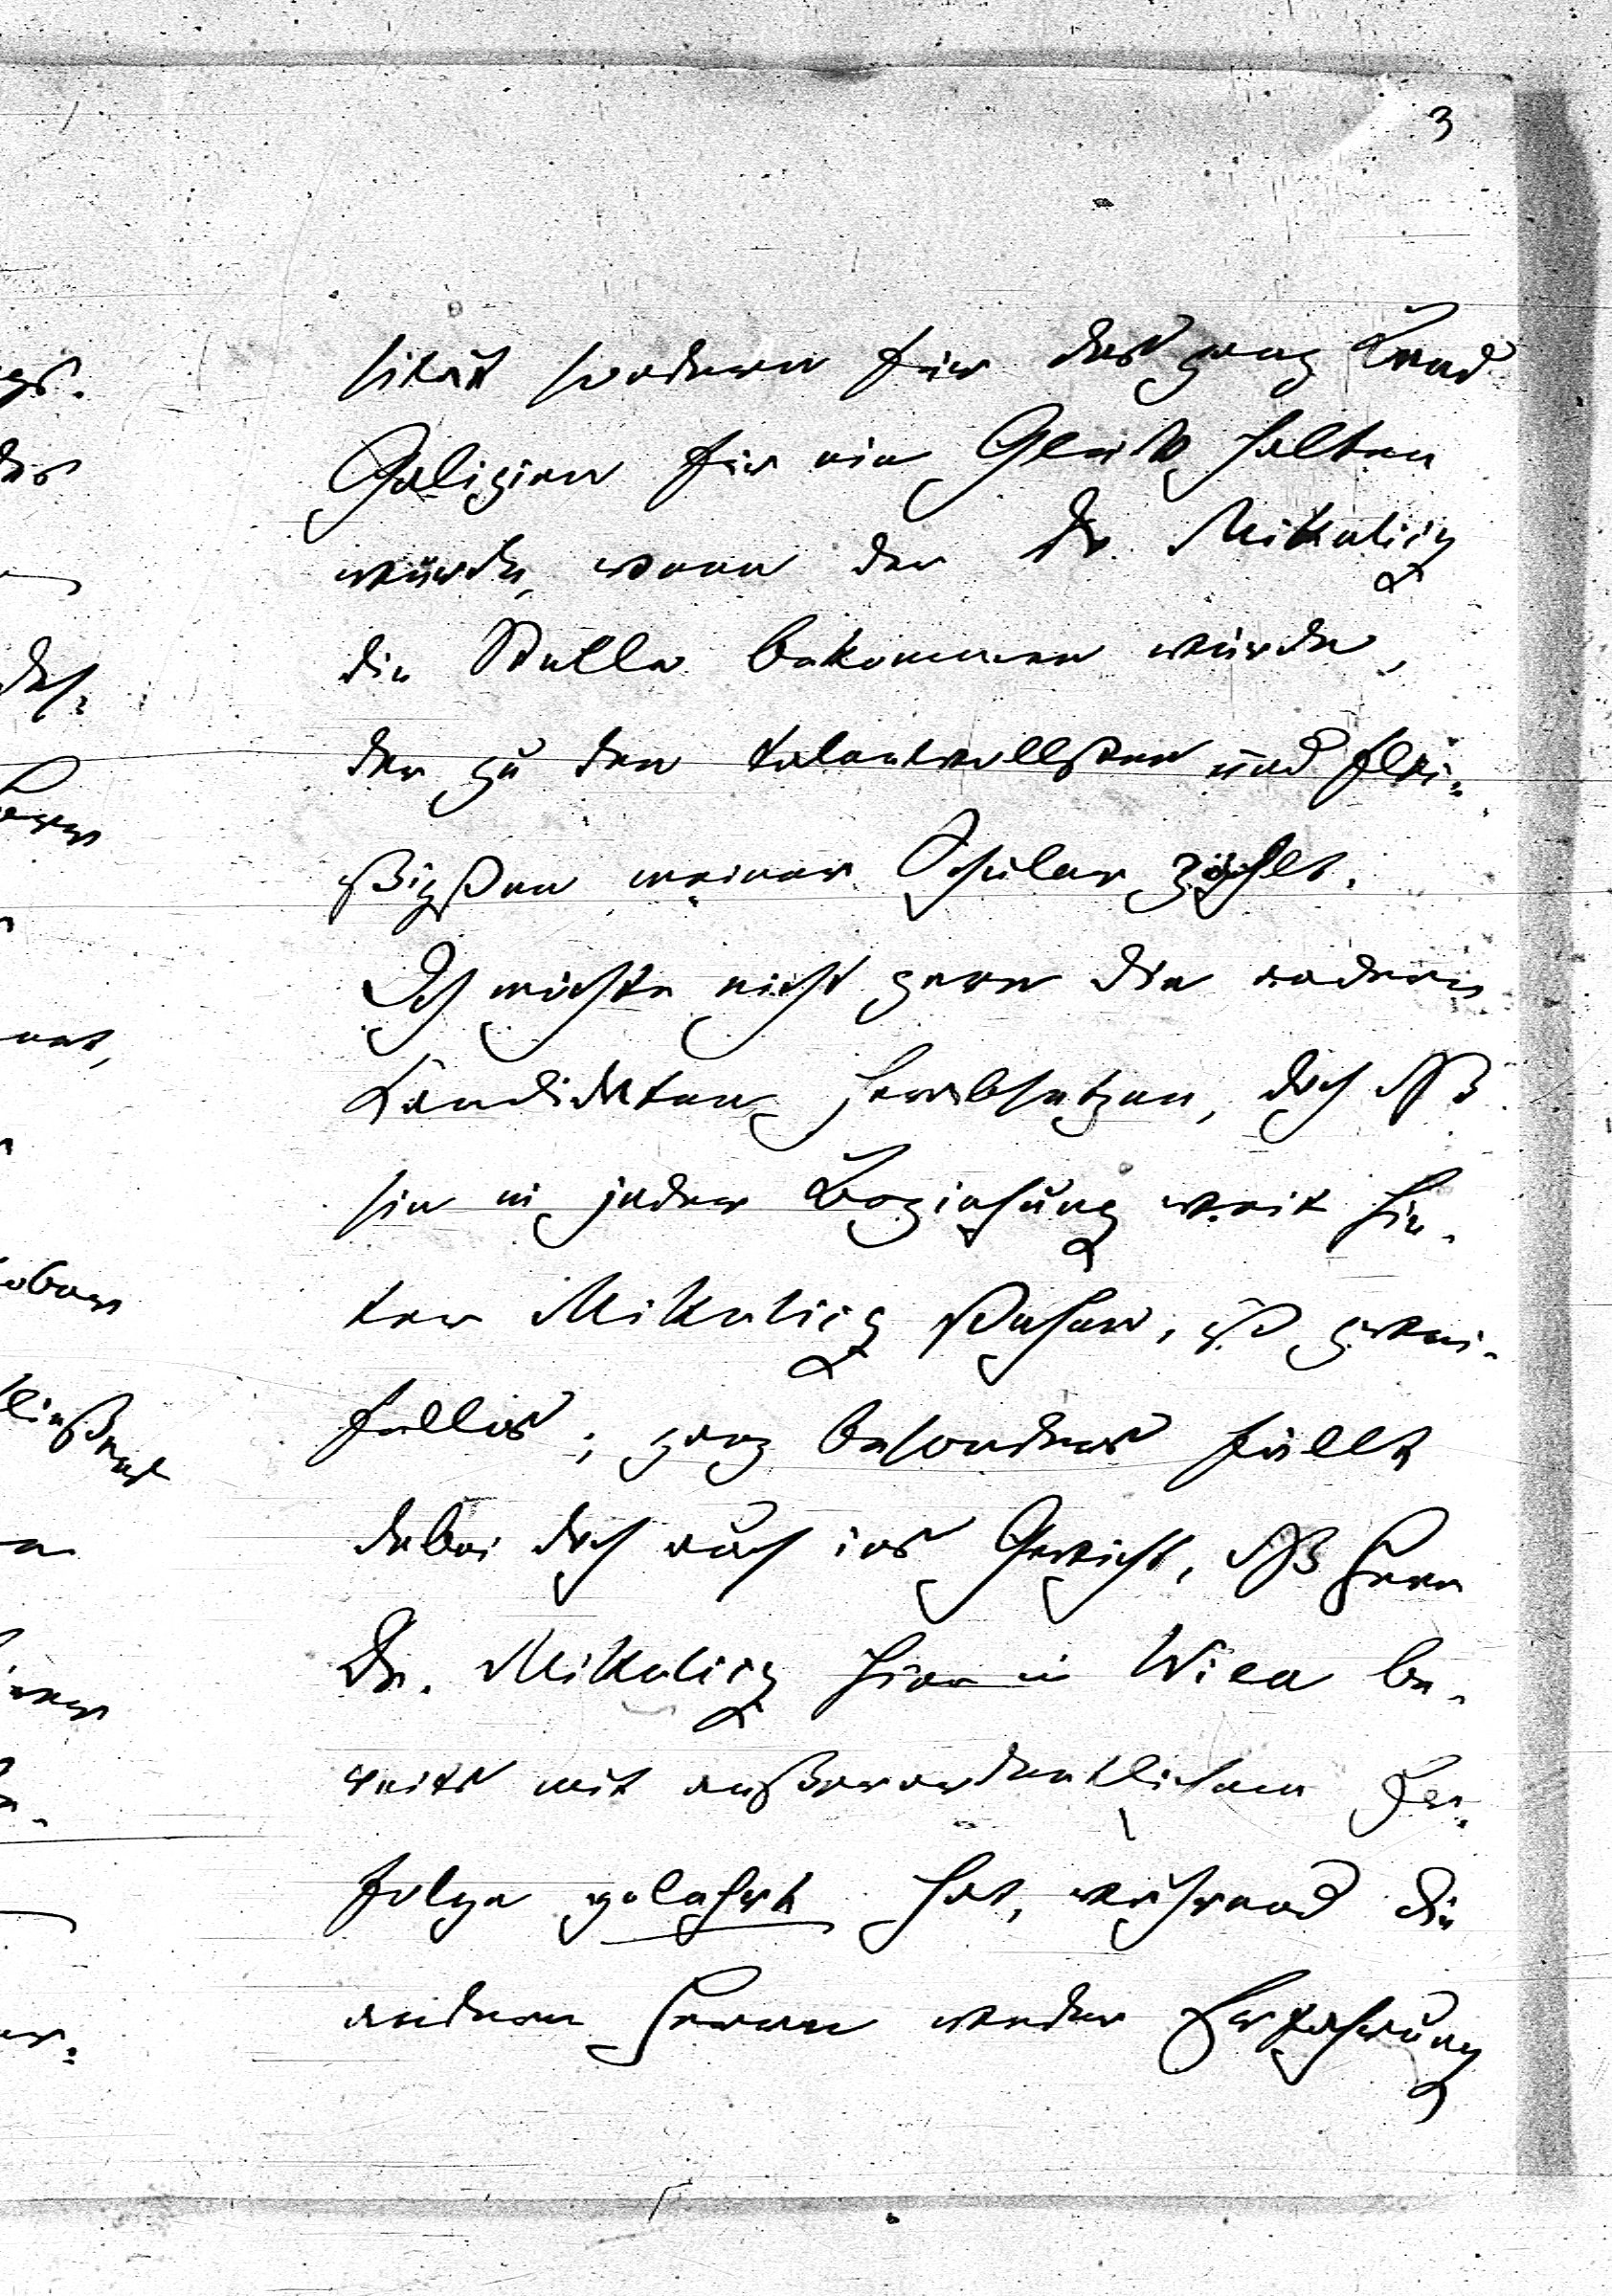 3
sität sondern für das ganz Land
Galizien für ein Glück halten
würde, wenn der Dr Mikulicz
die Stelle bekommen würde,
der zu den talentvollsten und flei-
ßigsten meiner Schüler zählt.
Ich möchte nicht gern die andern
Kandidaten herabsetzen, doch daß
sie in jeder Beziehung weit hin-
ter Mikulicz stehen, ist zwei-
fellos; ganz besonders fällt
dabei doch auch ins Gewicht, daß Herr
Dr. Mikulicz hier in Wien be-
reits mit außerordentlichem Er-
folge gelehrt hat, während die
andern Herren weder Erfahrung